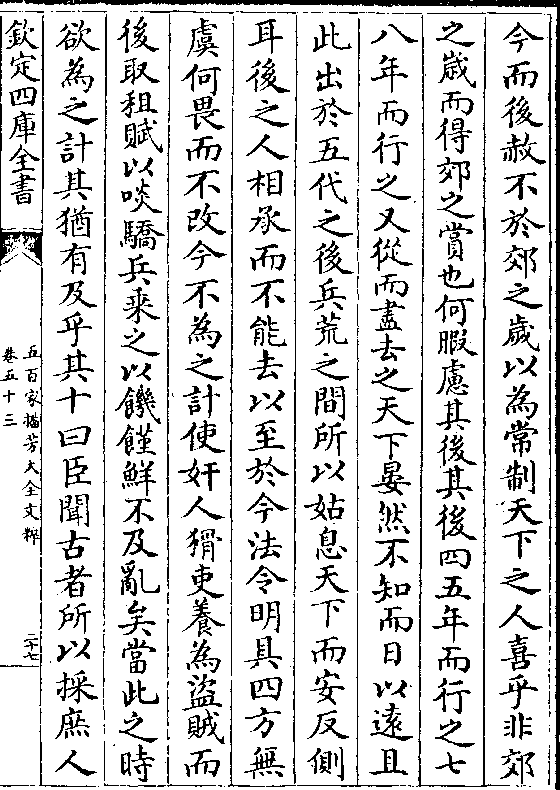 今而後赦不於郊之歳以為常制天下之人喜乎非郊
之歳而得郊之賞也何暇慮其後其後四五年而行之七
八年而行之又從而盡去之天下晏然不知而日以遠且
此出於五代之後兵荒之間所以姑息天下而安反側
耳後之人相承而不能去以至於今法令明具四方無
虞何畏而不改今不為之計使奸人猾吏養為盜賊而
後取租賦以啖驕兵乗之以饑饉鮮不及亂矣當此之時
欲為之計其猶有及乎其十曰臣聞古者所以採庶人
欽定四庫全書
五百家播芳大全文粹
卷五十三
二十七